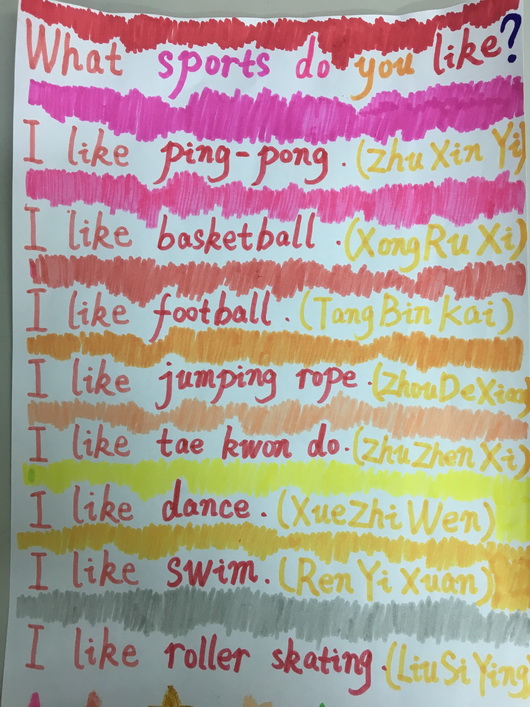 What sports do you like?
I like ping-pong. (Zhu Xin Yi)
I like basketball. (XongRu Xi)
I like football. (Tang Bin Kai)
I like jumping rope. (ZhouDeXiao
I like tae kwon do. (Zhu Zhen Xi)
I like dance. (XueZhi Wen)
I like swim. (Ren Yi Xuan)
I like roller skating. (Liu Si Ying)